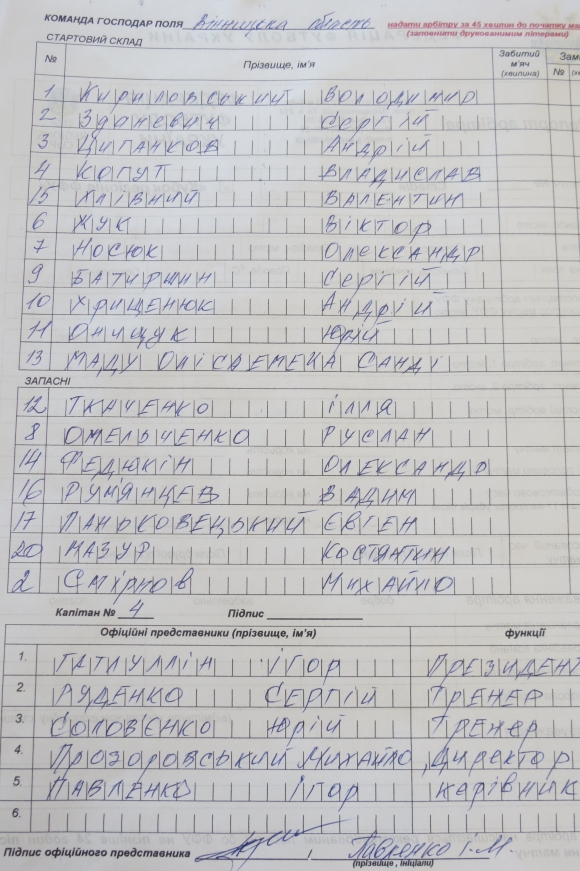 КОМАНДА ГОСПОДАР ПОЛЯ Вінницька область
надати арбітру за 45 хвилин до початку ма
(заповнити друкованими літерами)
СТАРТОВИЙ СКЛАД
№ Прізвище, ім'я Забитий м'яч (хвилина) Замі
№ (х
1 Кириловський Володимир
2 Зданевич Сергій
3 Циганков Андрій
4 Когут Владислав
15 Хлівний Валентин
6 Жук Віктор
7 Носюк Олександр
9 Батиршин Сергій
10 Хрищенюк Андрій
11 Онищук Юрій
13 Маду Олісаемека Санді
ЗАПАСНІ
12 Ткаченко Ілля
8 Омельченко Руслан
14 Федюкін Олександр
16 Рум'янцев Вадим
17 Паньковецький Євген
20 Мазур Костянтин
2 Смірнов Михайло
Капітан № 4 Підпис
Офіційні представники (прізвище, ім'я) функції
1. Гатиуллін Ігор Президент
2. Руденко Сергій Тренер
3. Солов'єнко Юрій Тренер
4. Прозоровський Михайло Директор
5. Павленко Ігор Керівник
6.
Підпис офіційного представника / Павленко І.М.
(прізвище, ініціали)